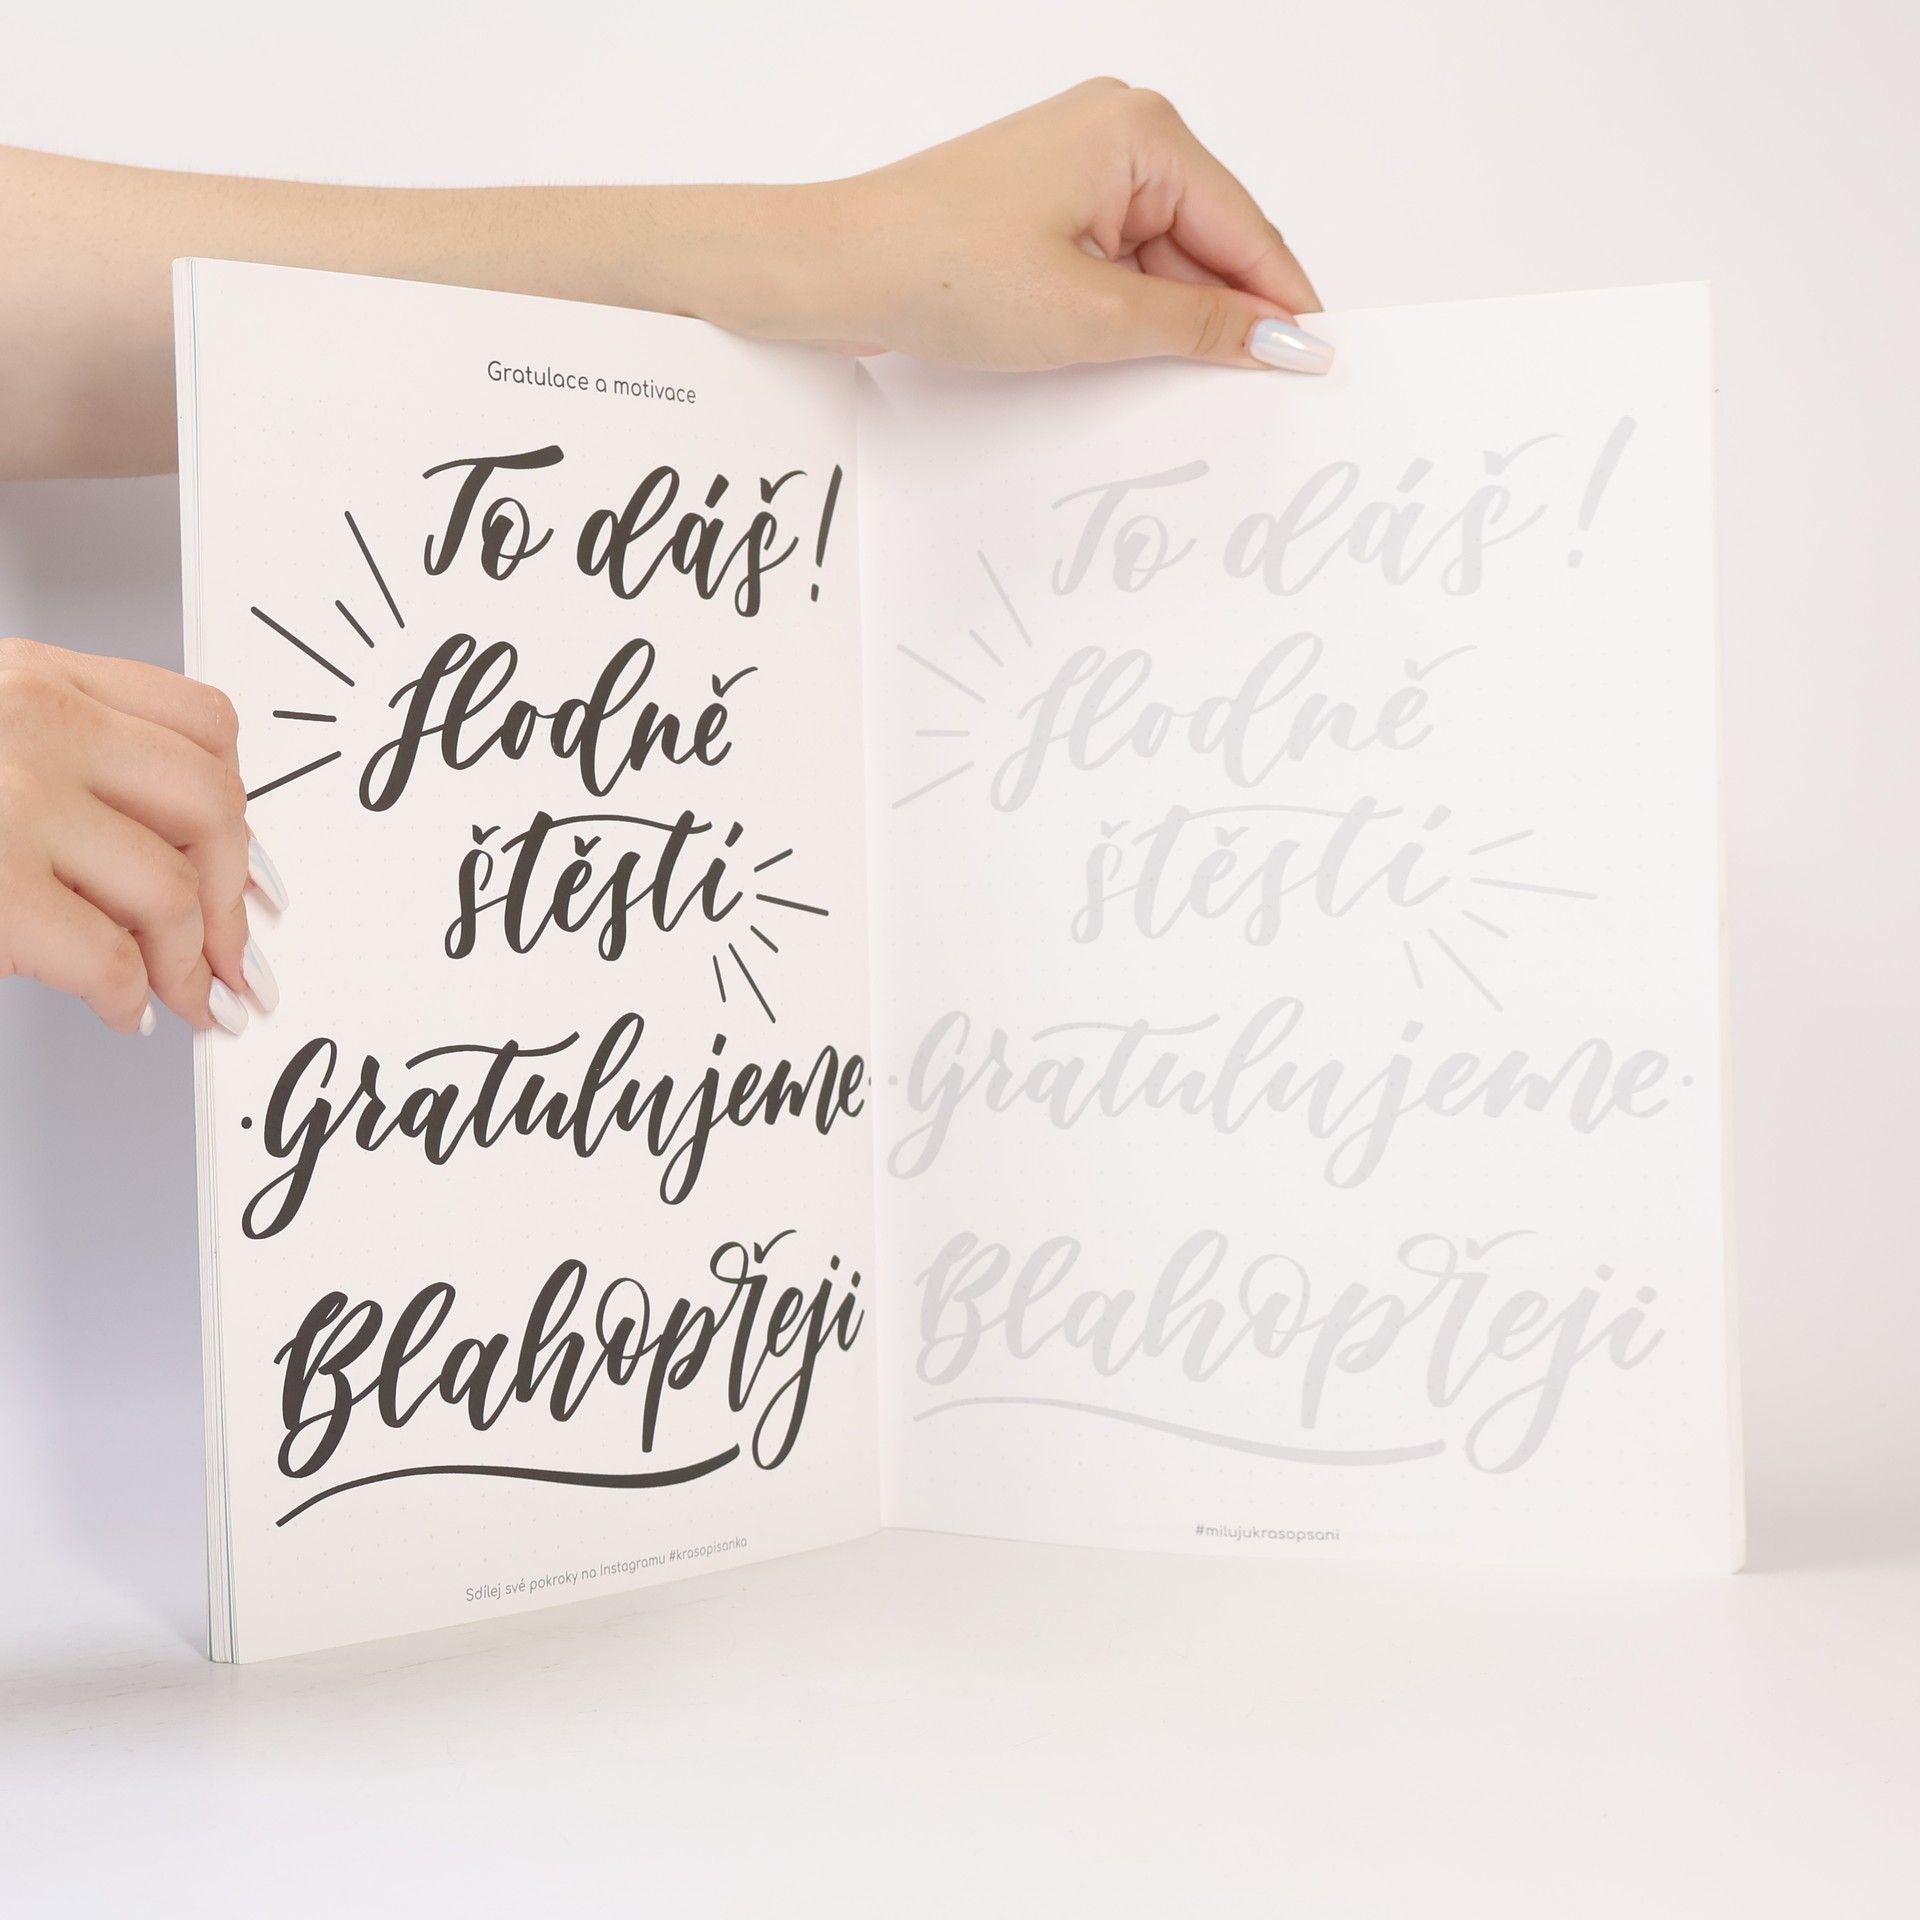 Gratulace a motivace
To dáš!
Hodně
štěstí
·Gratulujeme·
Blahopřeji
Sdílej své pokroky na Instagramu #krasopisanka
To dáš!
Hodně
štěstí
·Gratulujeme·
Blahopřeji
#milujukrasopsani